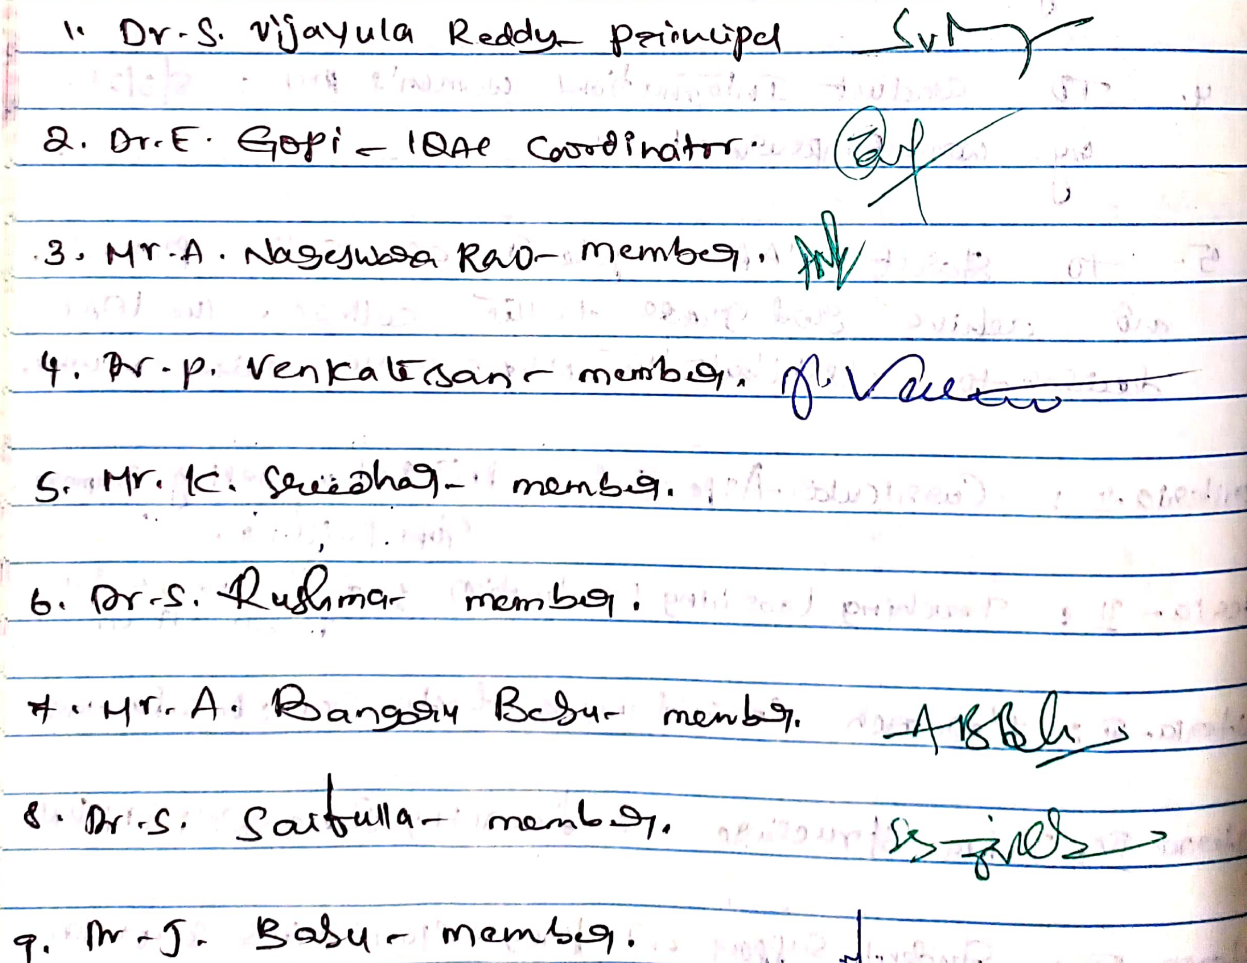 1. Dr. S. Vijayula Reddy - principal
2. Dr. E. Gopi - IQAC Coordinator.
3. Mr. A. Nageswara Rao - member.
4. Dr. P. Venkatesan - member. P. Ven
5. Mr. K. Sreedhar - member.
6. Dr. S. Rushma - member.
7. Mr. A. Bangaru Babu - member. ABBabu
8. Dr. S. Saifulla - member.
9. Dr. J. Babu - member.